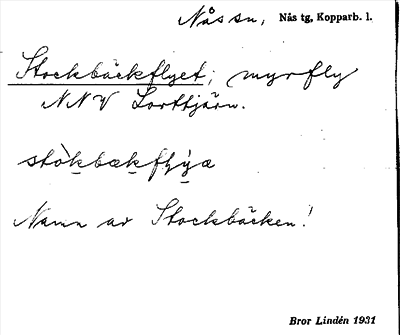 Nås sn, Nås tg, Kopparb. l.
Stockbäckflyet; myrfly
NNV Lorttjärn.
Namn av Stockbäcken!
Bror Lindén 1931